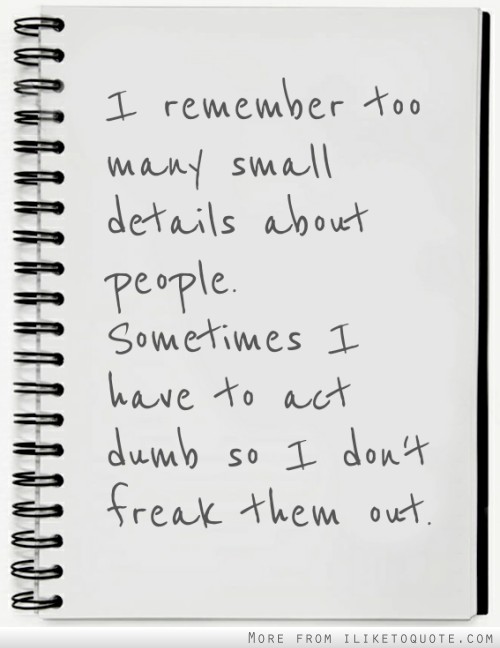 I remember too
many small
details about
people.
Sometimes I
have to act
dumb so I don't
freak them out.
MORE FROM ILIKETOQUOTE.COM